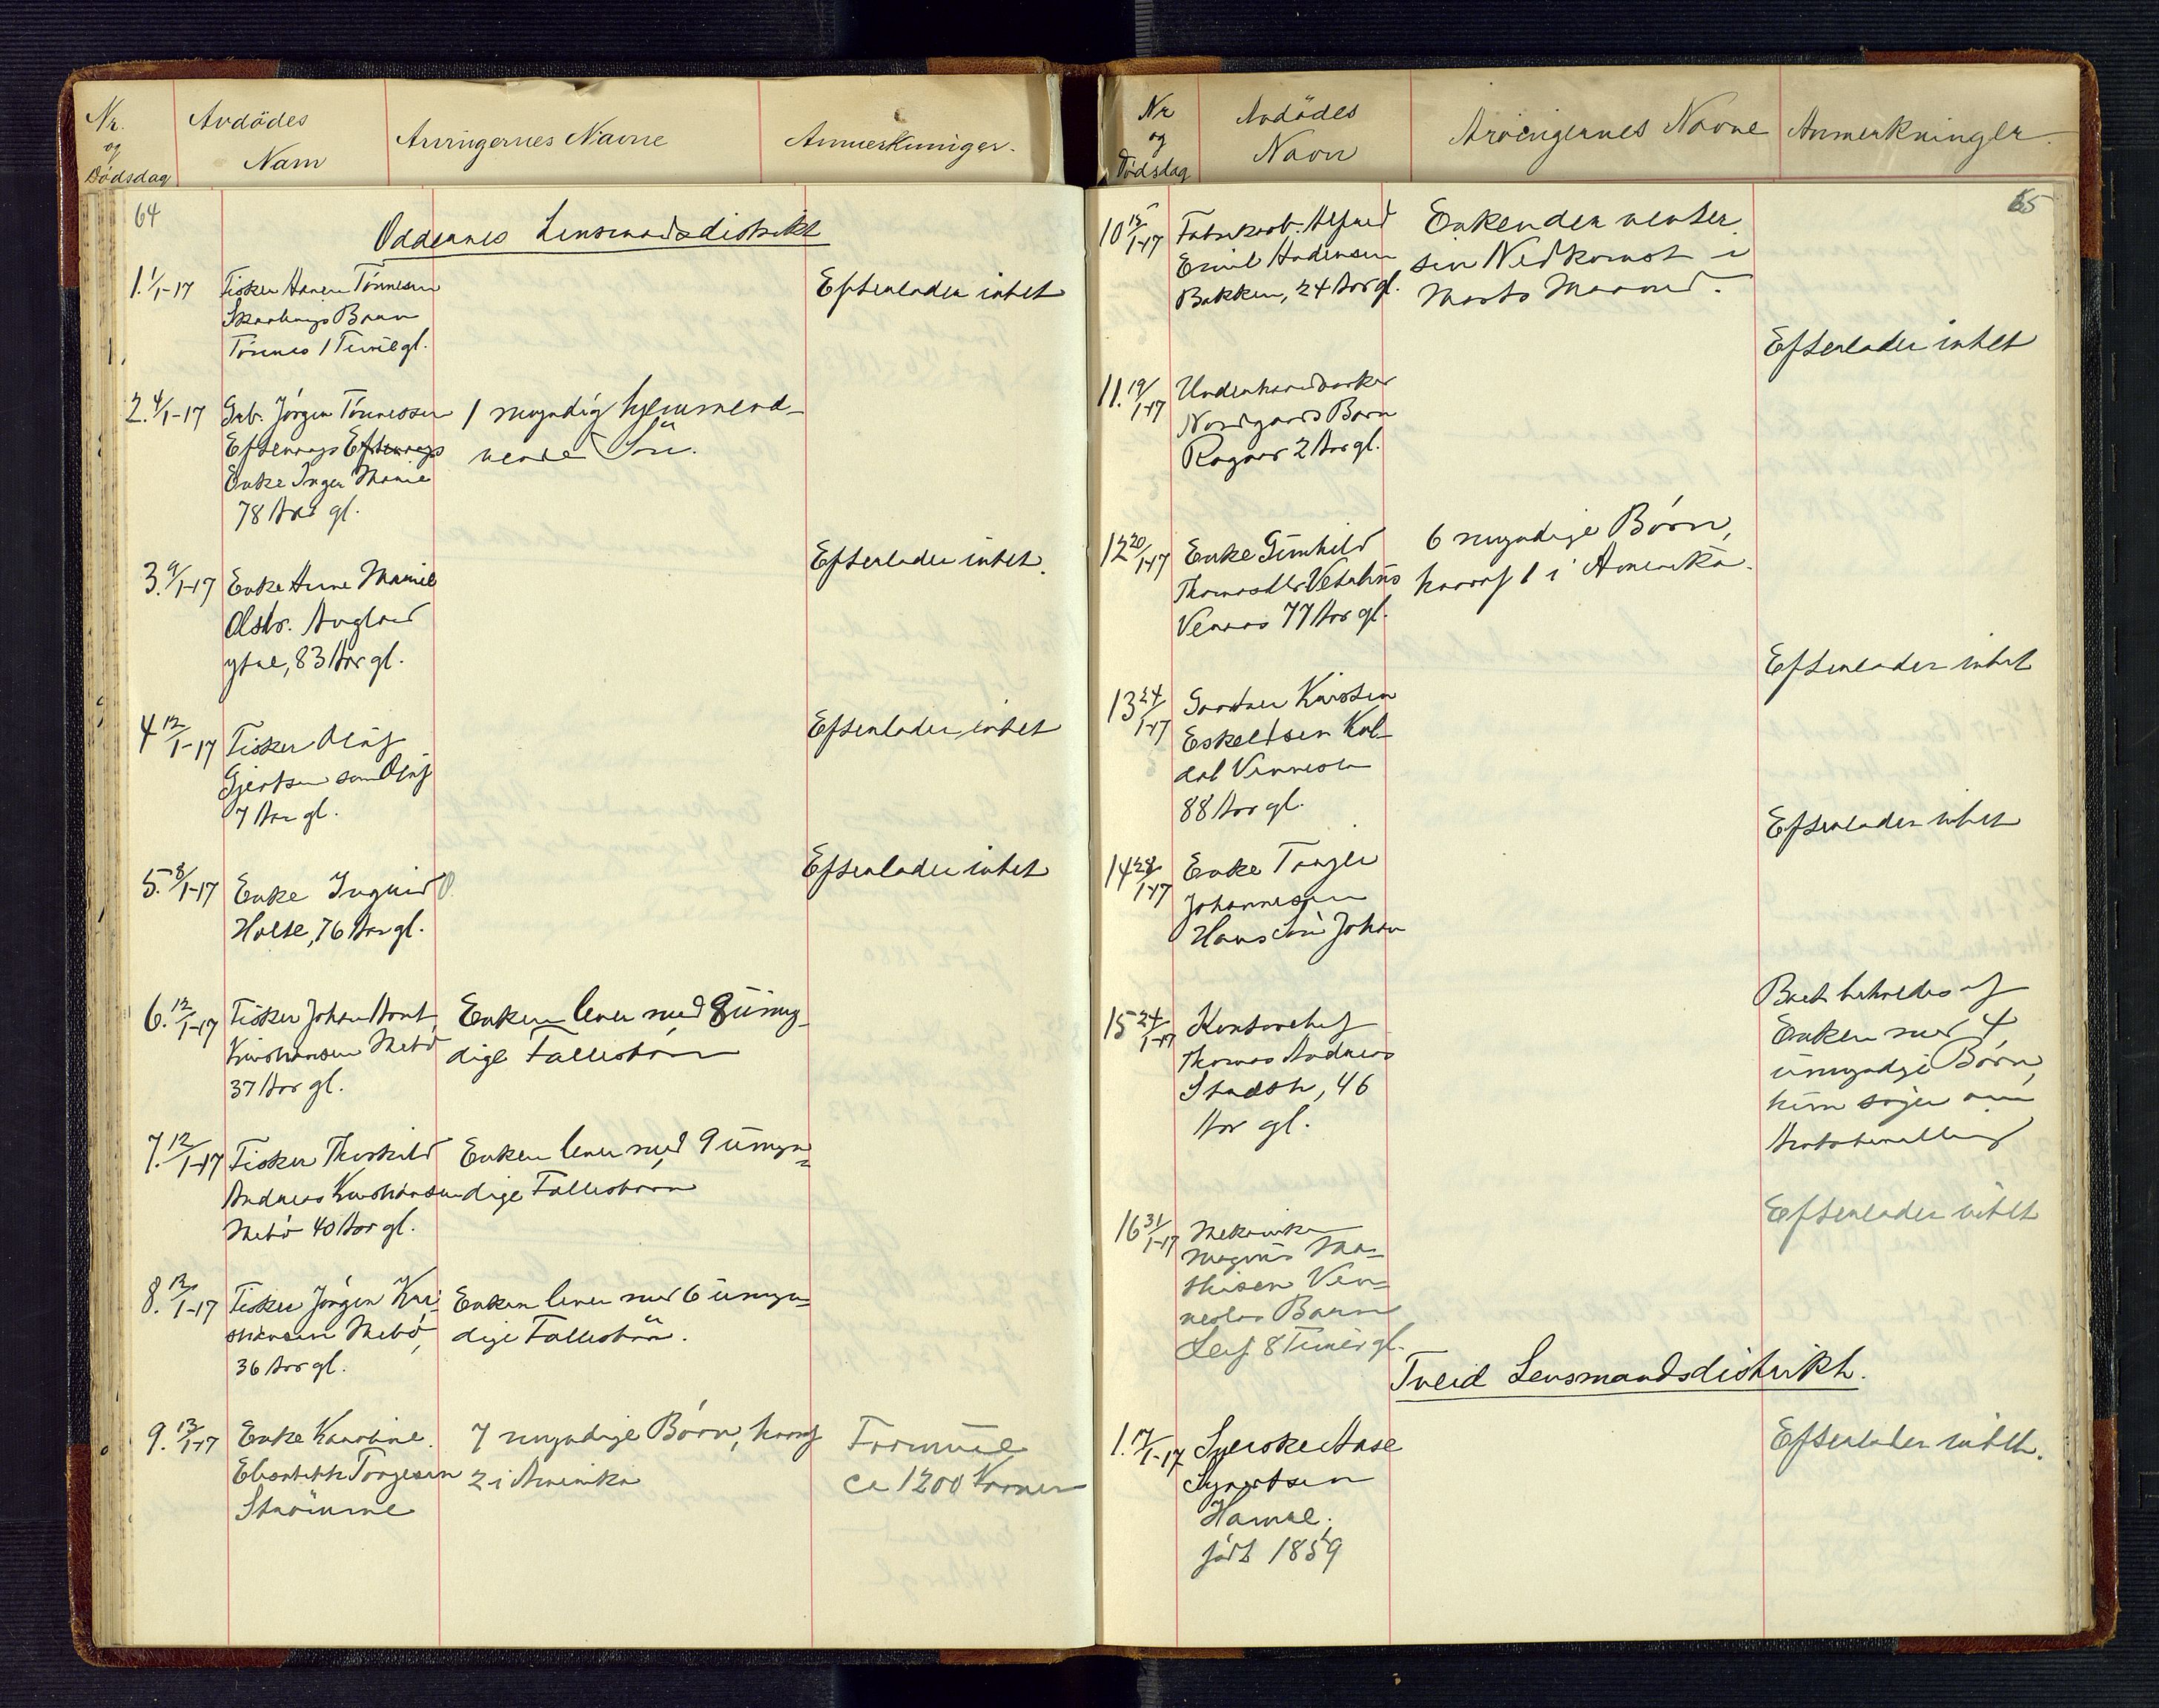 Nr.
og
Dödsdag
Avdödes
Navn
Arvingernes Navne
Anmerkninger.
64
Oddernes Lensmandsdistrikt
1. 1/1-17 Fisker Tönnesen
Barn
Tönnes 1 Time gl.
Efterlader intet
2. 4/1-17 Grb. Jörgen Tönnessen
Enke Inger Marie
78 Aar gl.
1 myndig hjemmend-
Sön.
3. 9/1-17 Enke Anne Marie
Olsdr. Augland
ytre, 83 Aar gl.
Efterlader intet.
4 12/1-17 Fisker Oluf
Gjertsen sön Oluf
7 Aar gl.
Efterlader intet
5. 8/1-17 Enke Ingrid O.
Holte, 76 Aar gl.
Efterlader intet
6. 12/1-17 Fisker Johan Arnt
Kristiansen Mebö
37 Aar gl.
Enken lever med 8 umyn-
dige Fællesbörn
7. 12/1-17 Fisker Thorkild
Andreas Kristiansen
Mebö 40 Aar gl.
Enken lever med 9 umyn=
dige Fællesbörn
8. 12/1-17 Fisker Jörgen Kri-
stiansen Mebö,
36 Aar gl.
Enken lever med 6 umyn=
dige Fællesbörn.
9. 13/1-17 Enke Karoline
Elisabeth Torgersen
Strömme
7 myndige Börn, hvoraf
2 i Amerika
Formue
ca 1200 Kroner
Nr
og
Dödsdag
Avdödes
Navn
Arvingernes Navne
Anmerkninger
65
10 15/1-17 Fabrikarb. Alfred
Emil Andersen
Bakken, 24 Aar gl.
Enken der venter
sin Nedkomst i
Marts Maaned.
11. 19/1-17 Underhandvorker
Nordgaards Barn
Ragnar 2 Aar gl.
Efterlader intet
12 20/1-17 Enke Gunhild
Thomasdtr
Venaas 77 Aar gl.
6 myndige Börn,
hvoraf 1 i Amerika.
13 24/1-17 Gaardner Kirsten
Eskeldsen Kol-
dal Vennesla
88 Aar gl.
Efterlader intet
14 28/1-17 Enke
Johannesen
Hans Sön Johan
Efterlader intet
15 24/1-17 Kontorchef
Thomas Andreas
46
Aar gl.
Boet beholdes af
Enken med 4
umyndige Börn,
hun söger om
16 31/1-17 Mekaniker
Magnus Ma-
thisen Ven-
neslas Barn
Leif 8 Timer gl.
Efterlader intet
Tveid Lensmandsdistrikt.
1. Aase
Syvertsen
Hamre,
född 1859
Efterlader intet.